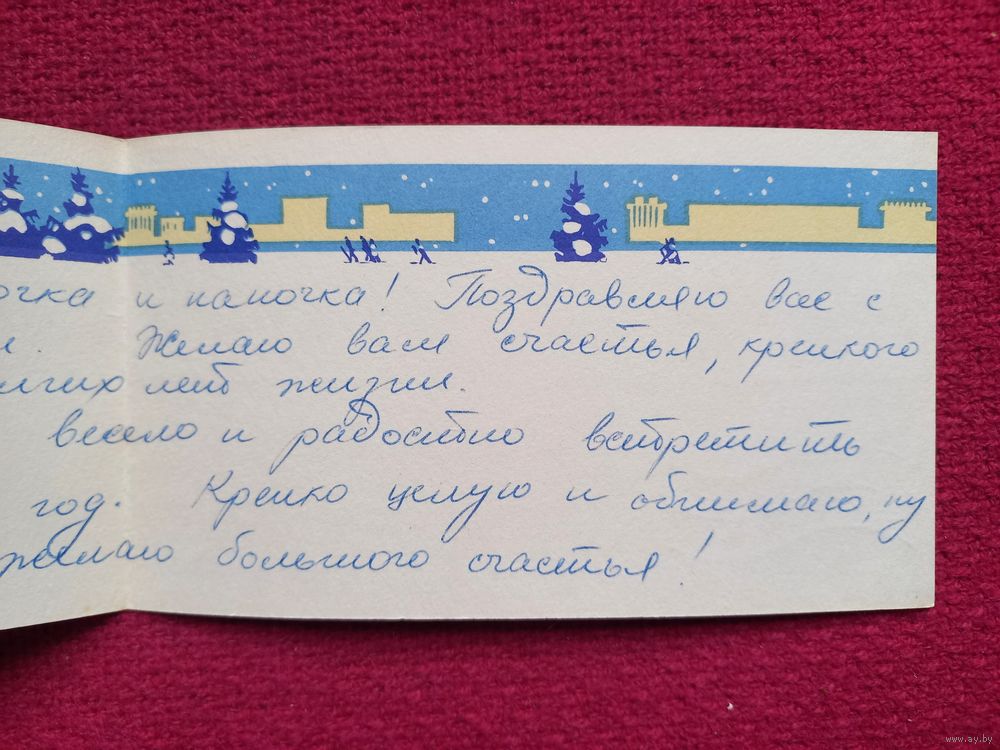 очка и папочка! Поздравляю вас с
и. Желаю вам счастья, крепкого
лгих лет жизни.
весело и радостно встретить
год. Крепко целую и обнимаю, ну
желаю большого счастья!
www.ay.by